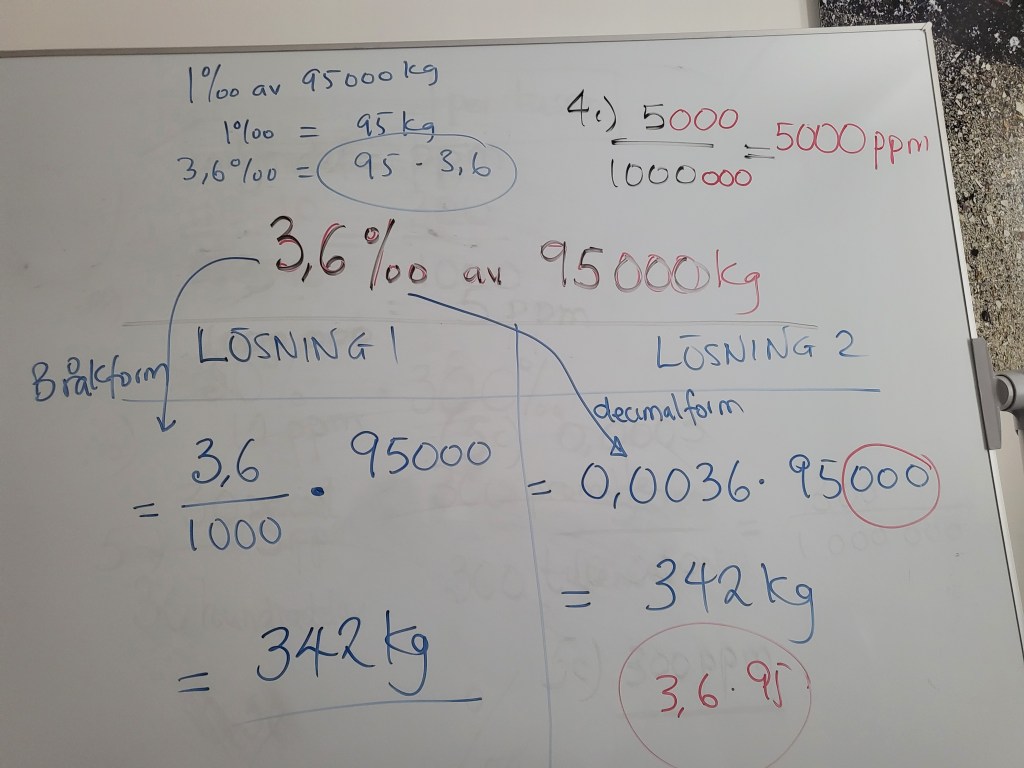 1‰ av 95000 kg
1‰ = 95 kg
3,6‰ = 95 · 3,6
4.) 5000
1000000 = 5000 ppm
3,6‰ av 95000 kg
LÖSNING 1
LÖSNING 2
Bråkform
decimalform
= 3,6
1000 · 95000
= 0,0036 · 95000
= 342 kg
= 342 kg
3,6 · 95